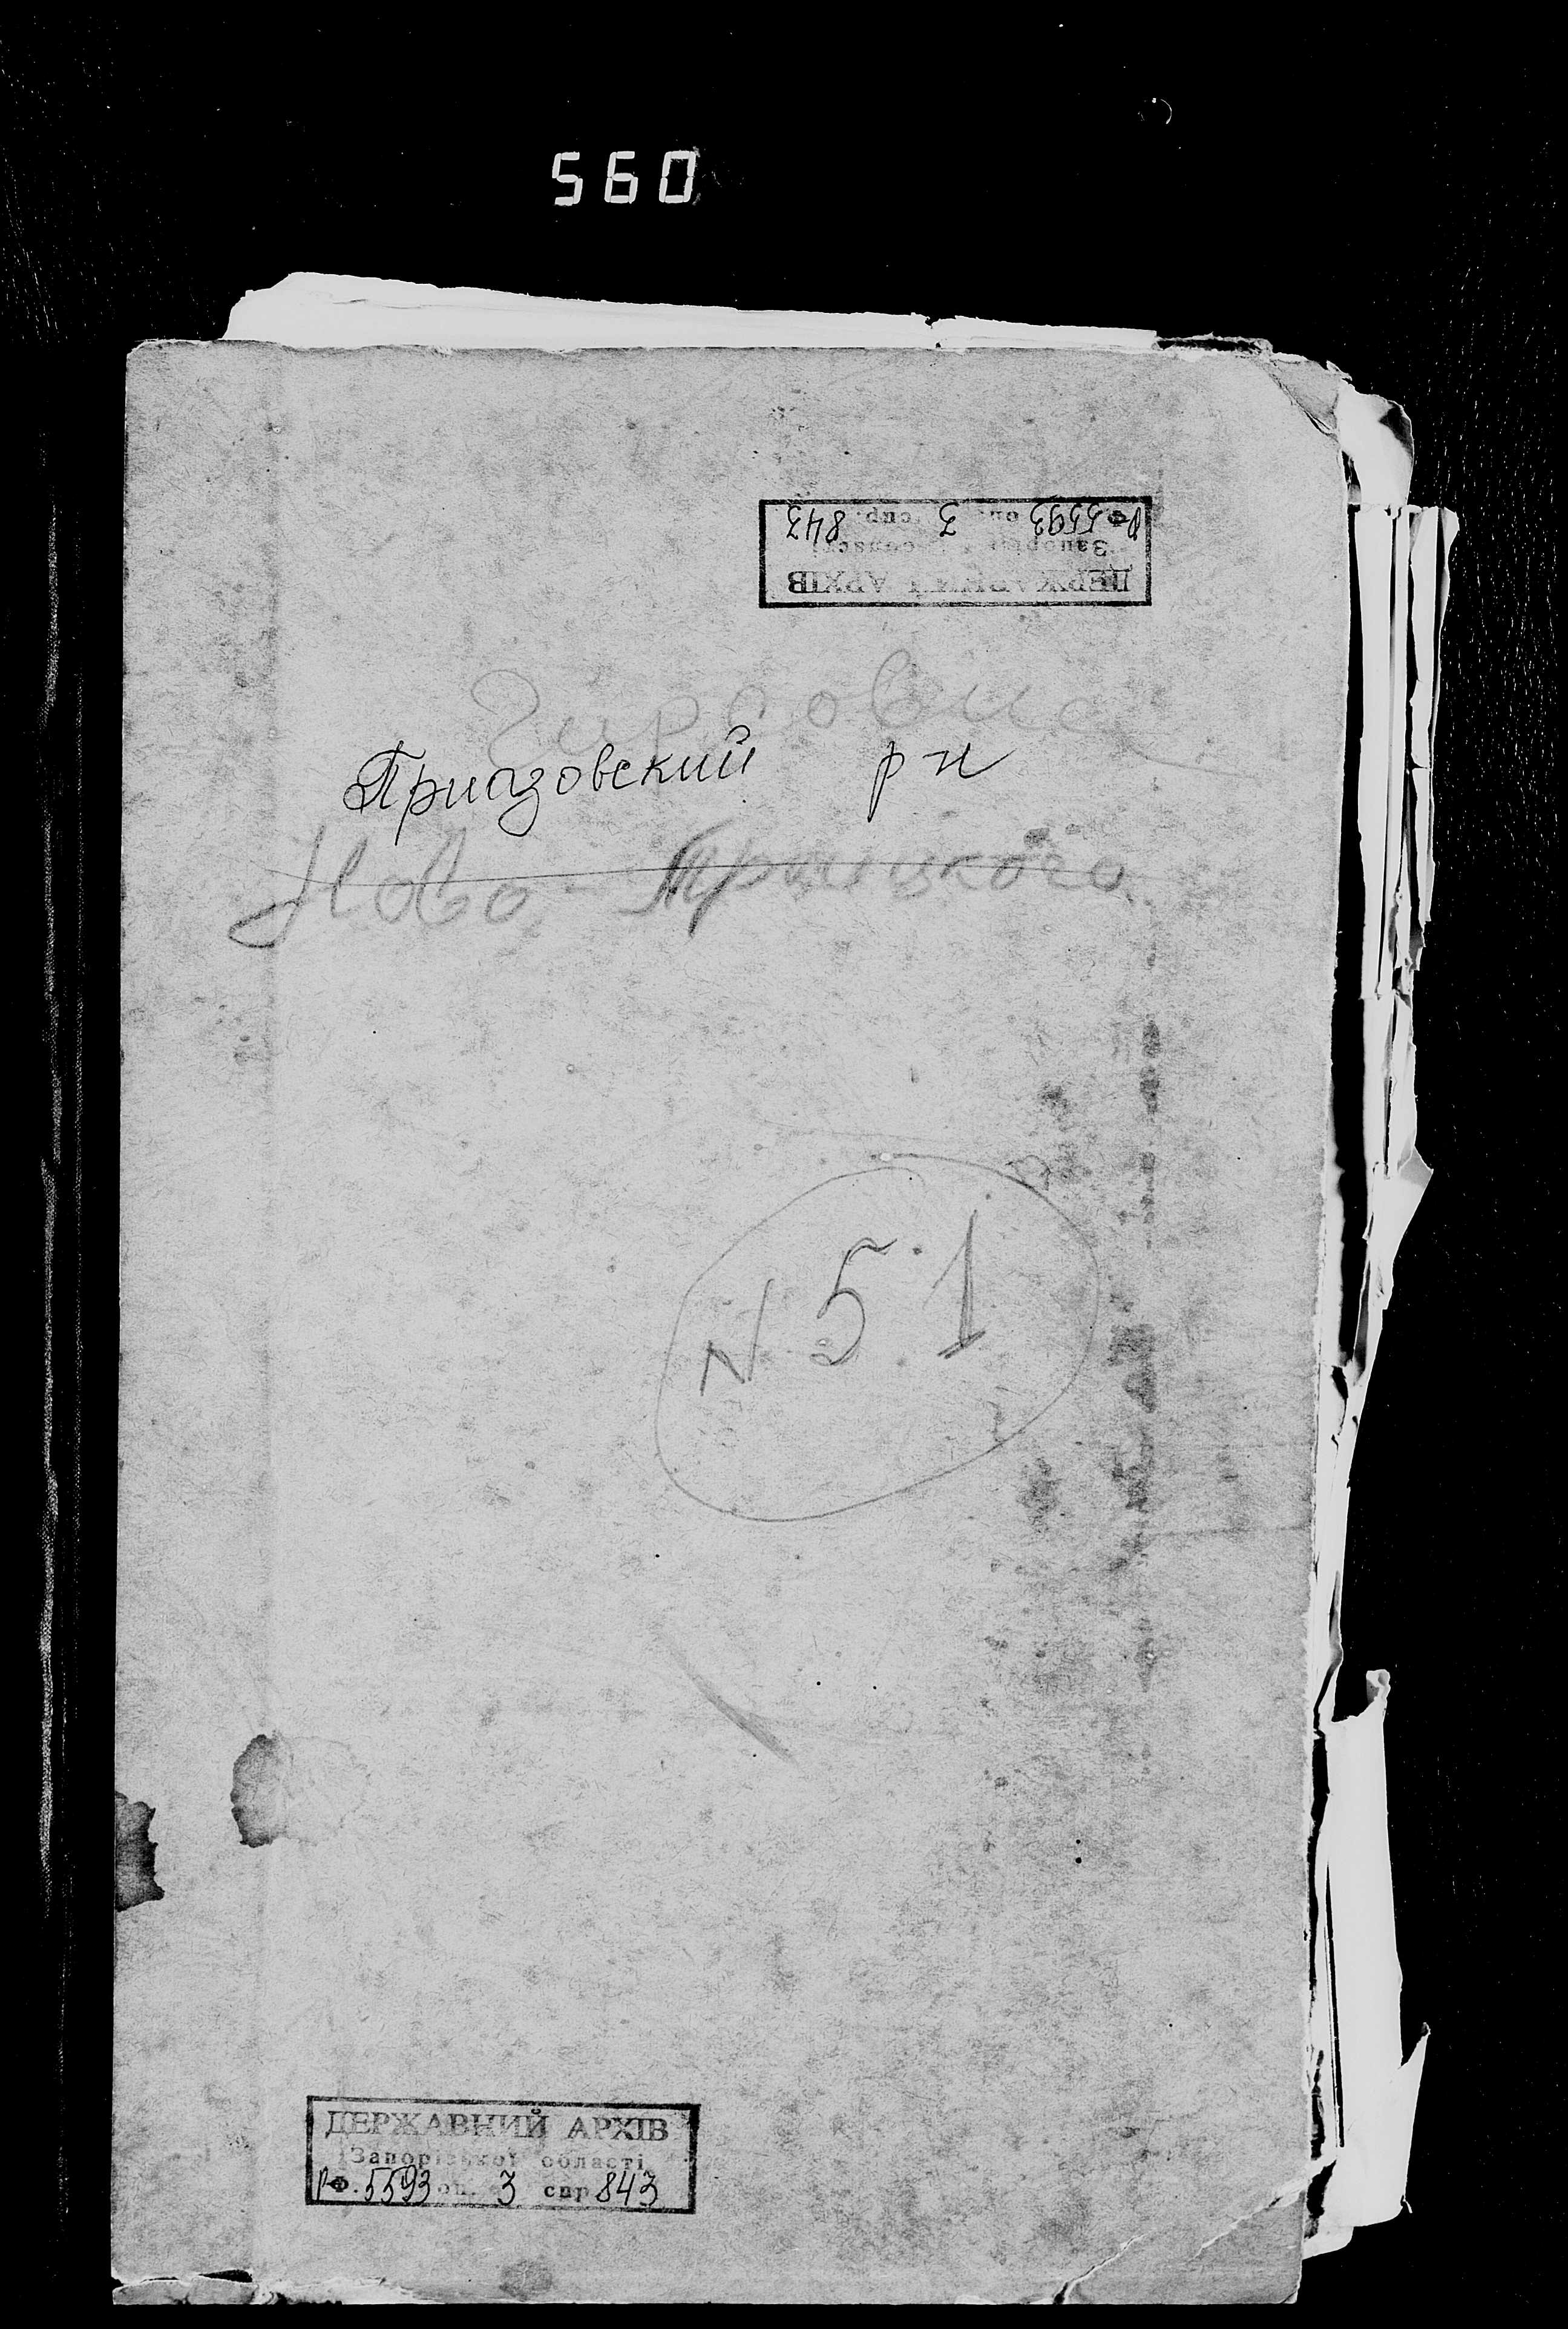 560
ДЕРЖАВНИЙ АРХІВ
Запорізької області
РФ. 5593 оп. 3 спр. 843
Гирсовка
Приазовский р-н
Ново-Троицкого
N 51
ДЕРЖАВНИЙ АРХІВ
Запорізької області
РФ. 5593 оп. 3 спр 843